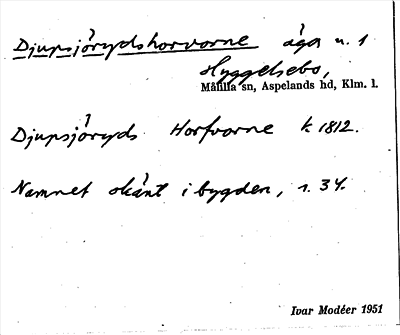 Djupsjörydshorvorne äga u. 1
Hyggelsebo,
Målilla sn, Aspelands hd, Klm. l.
Djupsjöryds Horfvorne k 1812.
Namnet okänt i bygden, s. 34.
Ivar Modéer 1951